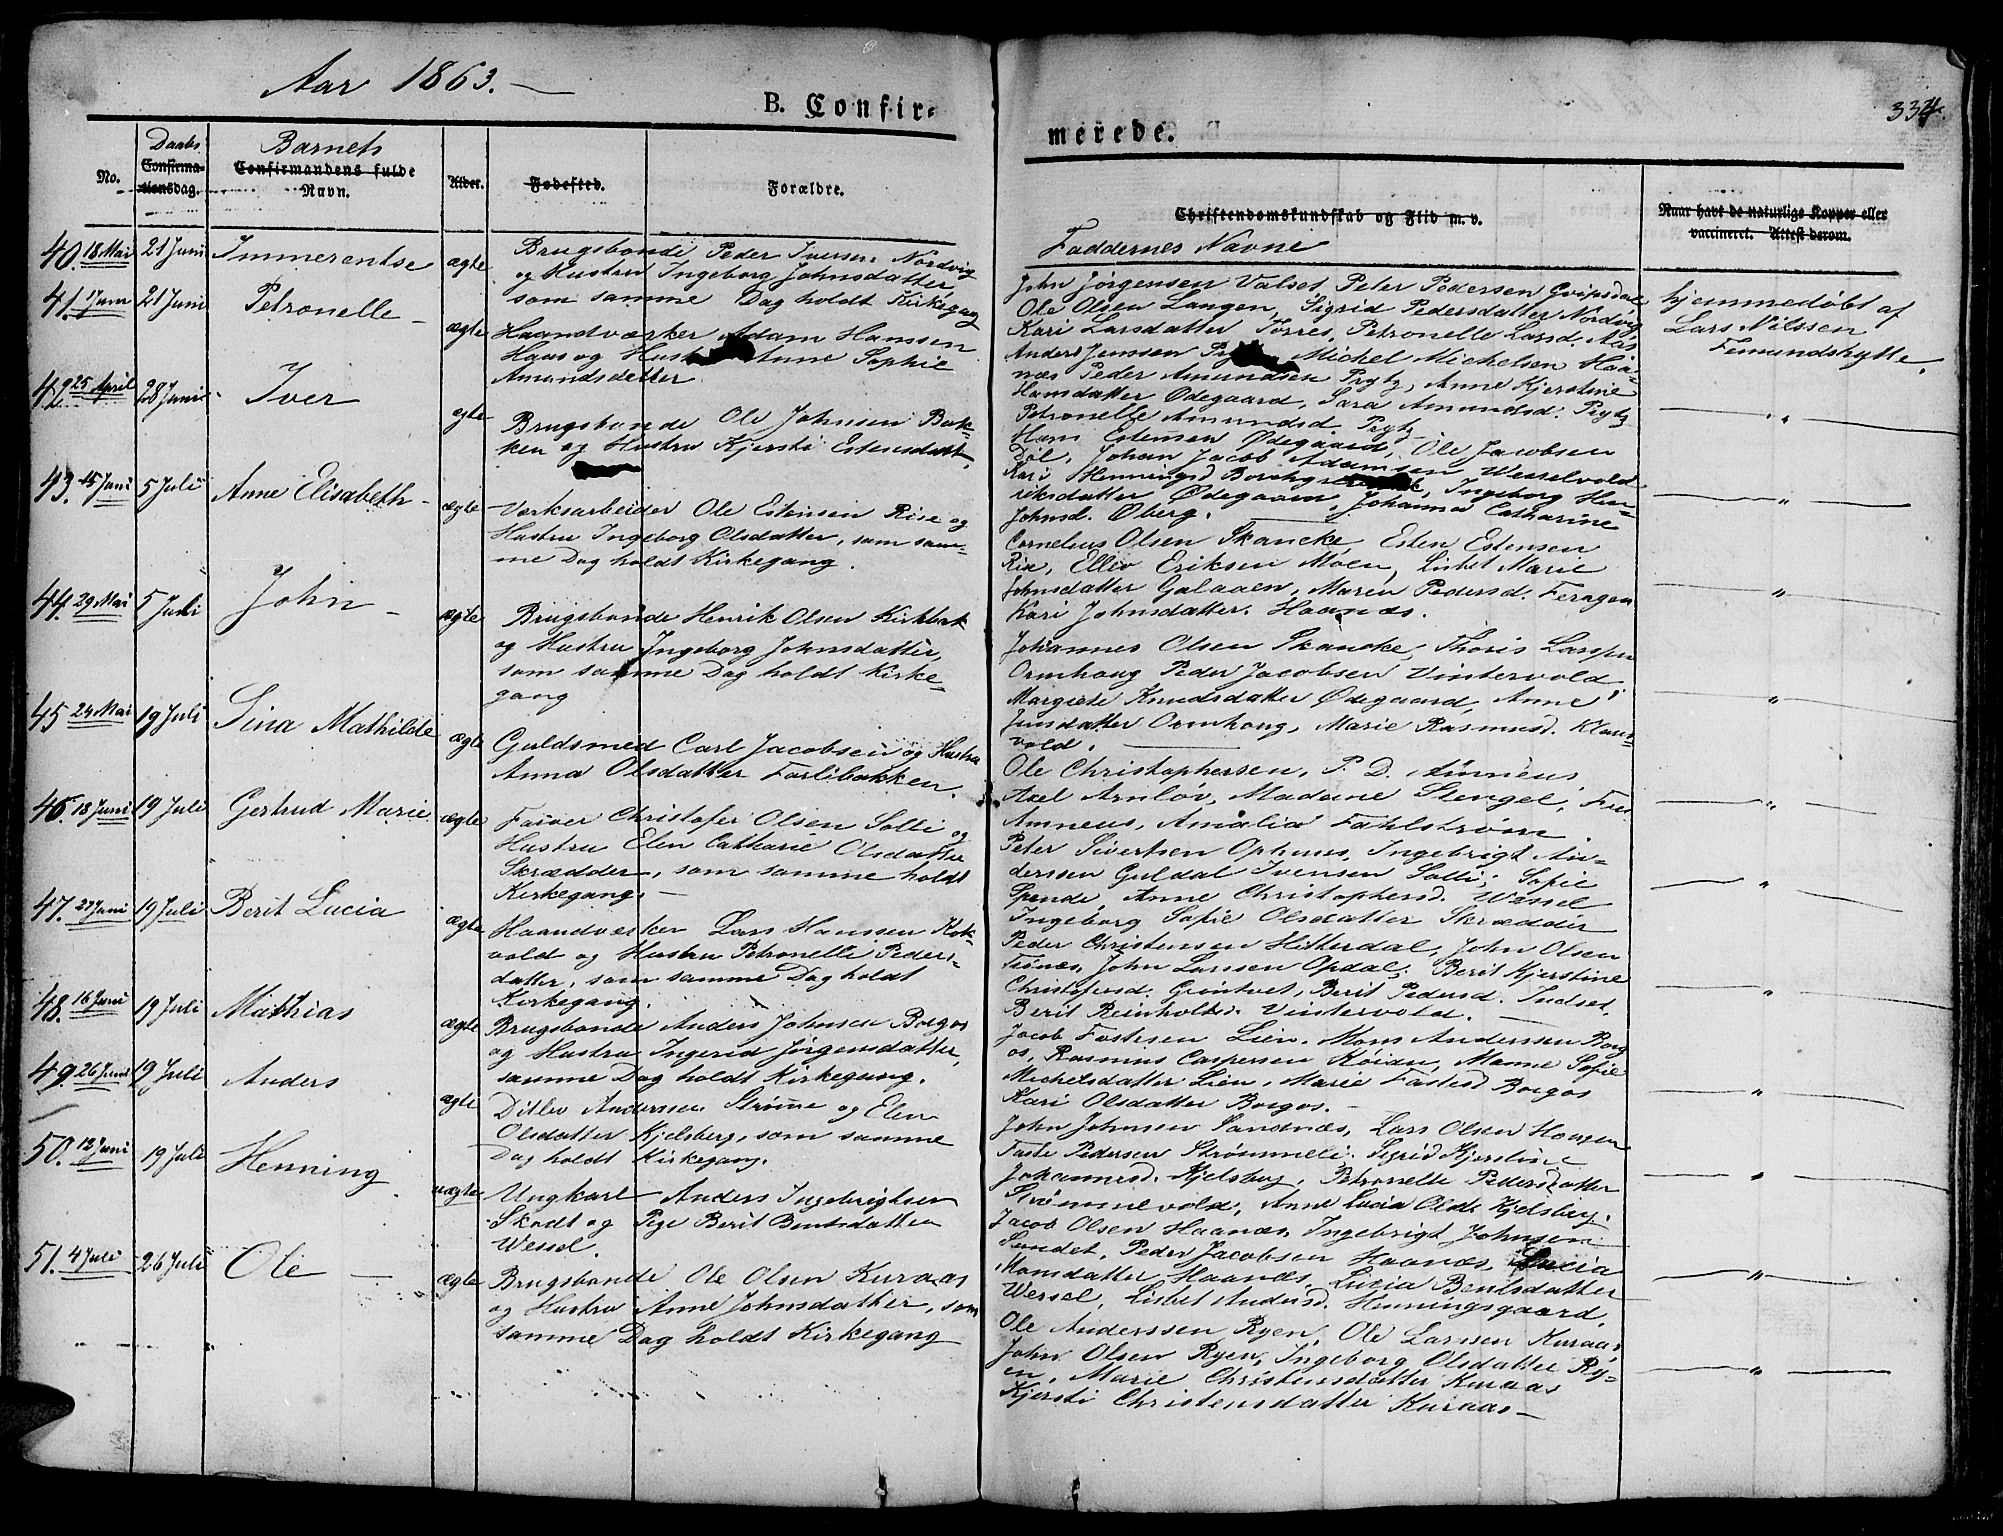 Aar 1863.
B. Confir-
merede.
334.
No.
Daabs
Confirma-
tionsdag.
Barnets
Confirmandens fulde
Navn.
Alder.
Fødested.
Forældre.
Christendomskundskab og Flid m. v.
Faddernes Navne
Naar havt de naturlige Kopper eller
vaccineret. Attest derom.
40. 18 Mai 21 Juni Immerentse ægte
Brugsbonde Peder Iversen Nordvig
og Hustru Ingeborg Johnsdatter
som samme Dag holdt Kirkegang
John Jörgensen Valset Peter Pedersen
Ole Olsen Langen, Sigrid Pedersdatter Nordvig
Kari Larsdatter Torres, Petronelle Larsd. Aas
hjemmedøbt af
Lars Nilssen
Femundshytte.
41. 1 Juni 21 Juni Petronelle - ægte
Haandværker Adam Hanssen
Haas og Anne Sophie
Amundsdatter
Anders Jenssen Michel Michelsen Haa-
næs Peder Amundsen Prytz, Anne Kjerstine
Hansdatter Ødegaard, Sara Amundsd. Prytz
Petronelle Amundsd. Prytz -
42. 25 April 28 Juni Iver ægte
Brugsbonde Ole Johnsen Bak-
ken og Hustru Kjersti Estensdatt.
Hans Estensen Ødegaard, Ole Jacobsen
Döl, Johan Jacob Adamsen Wesselvold
Kari Henningsd Ingeborg Hen-
riksdatter Ødegaarn, Johanna Catharine
Johnsd. Øberg.
43. 15 Juni 5 Juli Anne Elisabeth - ægte
Værksarbeider Ole Estensen Rise og
Hustru Ingeborg Olsdatter, som sam-
me Dag holdt Kirkegang.
Cornelius Olsen Skancke, Esten Estensen
Rise, Ellev Eriksen Moen, Lisbet Marie
Johnsdatter Galaaen, Maren Pedersd. Feragen
Kari Johnsdatter Haanæs.
44. 29 Mai 5 Juli John - ægte
Brugsbonde Henrik Olsen Kirkbak
og Hustru Ingeborg Johnsdatter,
som samme Dag holdt Kirke-
gang
Johannes Olsen Skancke, Thoris Larssen
Ormhaug Peder Jacobsen Vintervold
Margrete Knudsdatter Ødegaard, Anne
Jensdatter Ormhaug, Marie Rasmusd. Klanc-
vold.
45 24 Mai 19 Juli Sina Mathilde ægte
Guldsmed Carl Jacobsen og Hustru
Anna Olsdatter Farlibakken.
Ole Christophersen, P. D. Amneus
Axel Arnlöv, Madame Stengel, Frue
Amneus, Amalia Fahlstrøm
46. 18 Juni 19 Juli Gertrud Marie ægte
Farver Christofer Olsen Solli og
Hustru Elen Catharie Olsdatter
Skrædder, som samme holdt
Kirkegang.
Peter Sivertsen Ophuus, Ingebrigt An-
derssen Guldal Ivensen Solli, Sofie
Spende, Anne Christophersd. Wessel
Ingeborg Sofie Olsdatter Skrædder
47. 27 Juni 19 Juli Berit Lucia ægte
Haandværker Lars Hanssen Kok-
vold og Hustru Petronelle Peders-
datter, som samme Dag holdt
Kirkegang.
Peder Christensen Hitterdal, John Olsen
Trönæs, John Larsen Opdal, Berit Kjerstine
Christofersd. Grøntvet, Berit Pedersd. Indset
Berit Reinholtsd. Vintervold.
48. 16 Juni 19 Juli Mathias ægte
Brugsbonde Anders Johnsen Borgos
og Hustru Ingerid Jørgensdatter,
samme Dag holdt Kirkegang.
Jacob Fastesen Lien, Mons Anderssen Borg-
os, Rasmus Caspersen Röien, Manne Sofie
Michelsdatter Lien, Marie Fastesd Borgos
Kari Olsdatter Borgos.
49. 26 Juni 19 Juli Anders ægte
Ditlev Anderssen Strømme og Elen
Olsdatter Kjelsberg, som samme
Dag holdt Kirkegang.
John Johnsen Sandnæs, Lars Olsen Hougen
Faste Pedersen Strömmeli, Sigrid Kjerstine
Johannesd. Kjelsberg, Petronelle Pedersdatter
Strömmevold, Anne Lucia Olsdt. Kjelsberg.
50. 12 Juni 19 Juli Henning uægte
Ungkarl Anders Ingebrigtsen
Skodt og Pige Berit Bentsdatter
Wessel.
Jacob Olsen Haanæs, Ingebrigt Johnsen
Sundet, Peder Jacobsen Haanæs, Lucia
Monsdatter Haanæs, Lucia Bentsdatter
Wessel, Lisbet Andersd. Henningsgaard,
51. 4 Juli 26 Juli Ole - ægte
Brugsbonde Ole Olsen Kuraas
og Hustru Anne Johnsdatter, som
samme Dag holdt Kirkegang
Ole Anderssen Ryen, Ole Larssen Kuraas
John Olsen Ryen, Ingeborg Olsdatter Ry-
en, Marie Christensdatter Kuraas
Kjersti Christensdatter Kuraas -